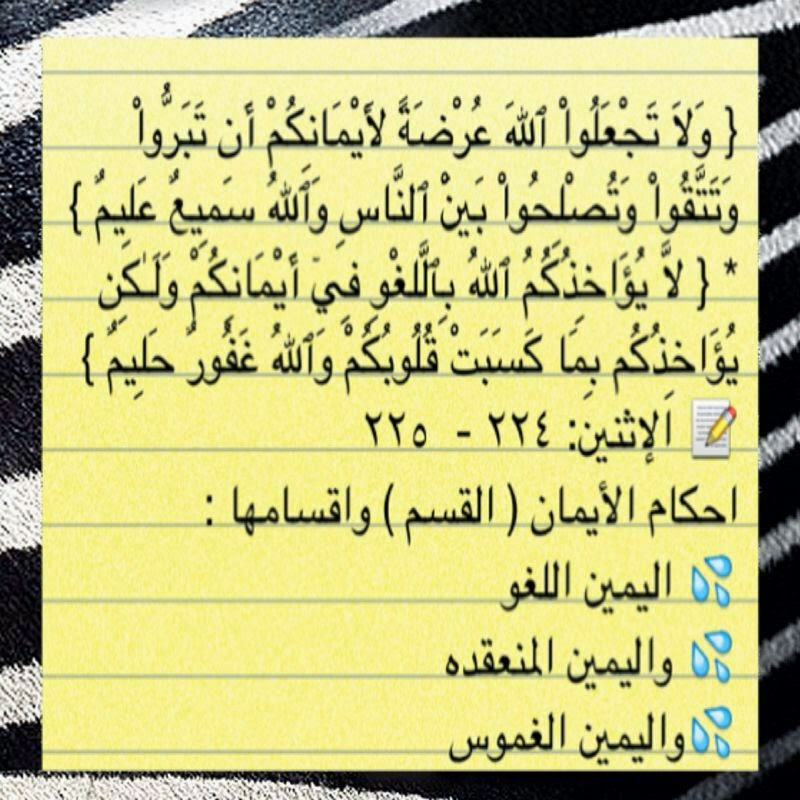 { وَلاَ تَجْعَلُواْ ٱللَّهَ عُرْضَةً لأَيْمَانِكُمْ أَن تَبَرُّواْ
وَتَتَّقُواْ وَتُصْلِحُواْ بَيْنَ ٱلنَّاسِ وَٱللَّهُ سَمِيعٌ عَلِيمٌ }
* { لاَّ يُؤَاخِذُكُمُ ٱللَّهُ بِٱللَّغْوِ فِيۤ أَيْمَانِكُمْ وَلَـٰكِن
يُؤَاخِذُكُم بِمَا كَسَبَتْ قُلُوبُكُمْ وَٱللَّهُ غَفُورٌ حَلِيمٌ }
📝 الإثنين: ٢٢٤ - ٢٢٥
احكام الأيمان ( القسم ) واقسامها :
💦 اليمين اللغو
💦 واليمين المنعقده
💦واليمين الغموس